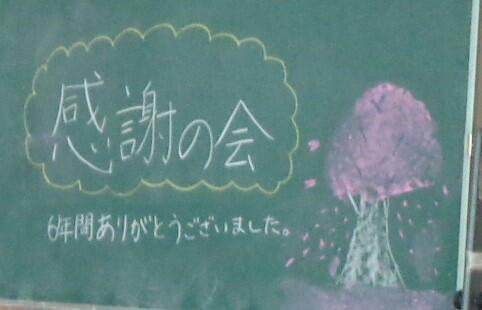 感謝の会
6年間ありがとうございました。